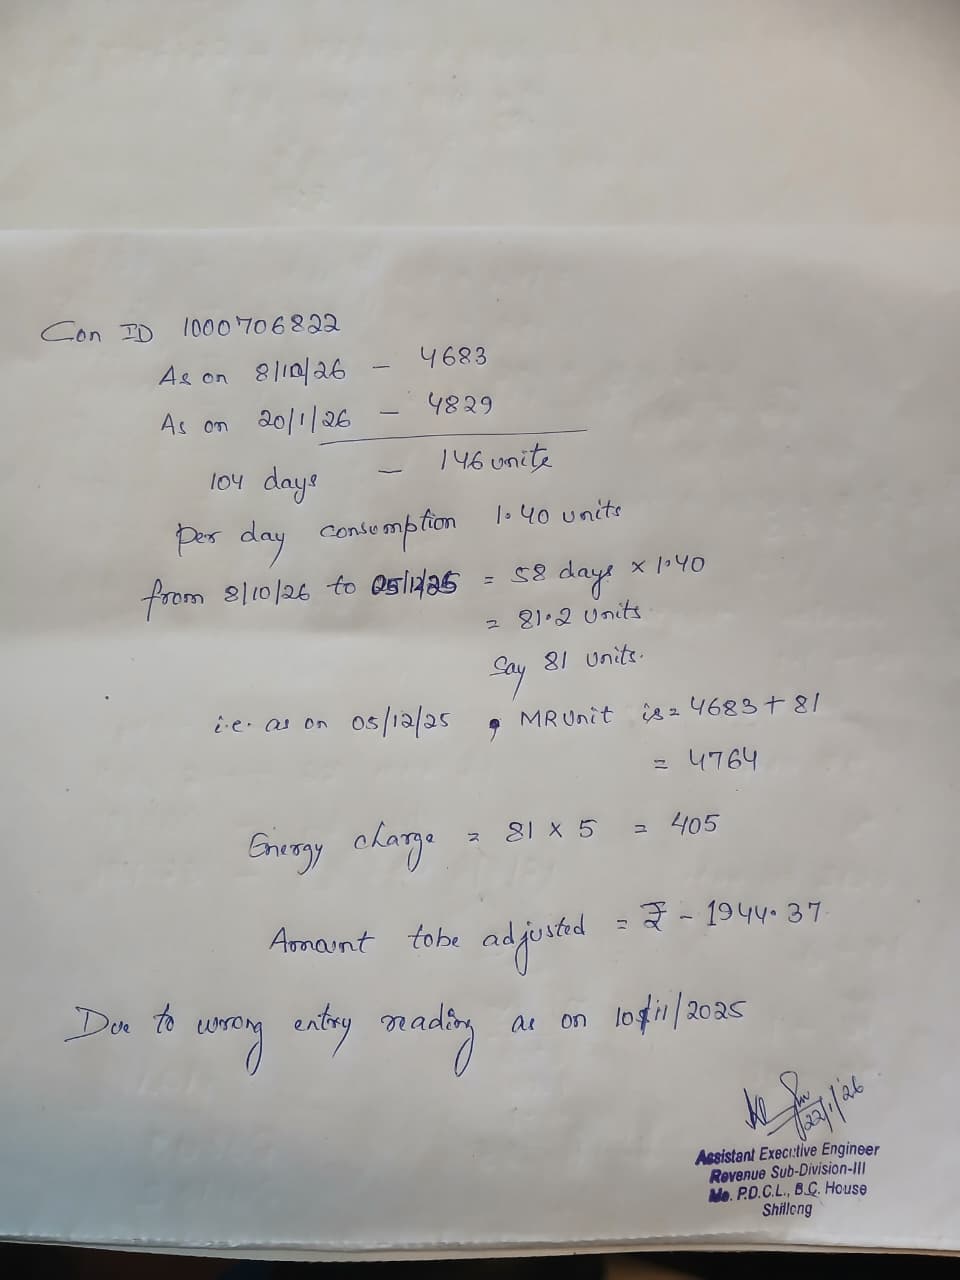 Con ID 1000706822
As on 8/10/26 - 4683
As on 20/1/26 - 4829
104 days - 146 units
Per day consumption 1.40 units
from 8/10/26 to 05/12/25 = 58 days x 1.40
= 81.2 Units
Say 81 Units.
i.e. as on 05/12/25, MR Unit is = 4683 + 81
= 4764
Energy charge = 81 x 5 = 405
Amount tobe adjusted = ₹ - 1944.37
Due to wrong entry reading as on 10/11/2025
22/1/26
Assistant Executive Engineer
Revenue Sub-Division-III
Me. P.D.C.L., B.C. House
Shillong